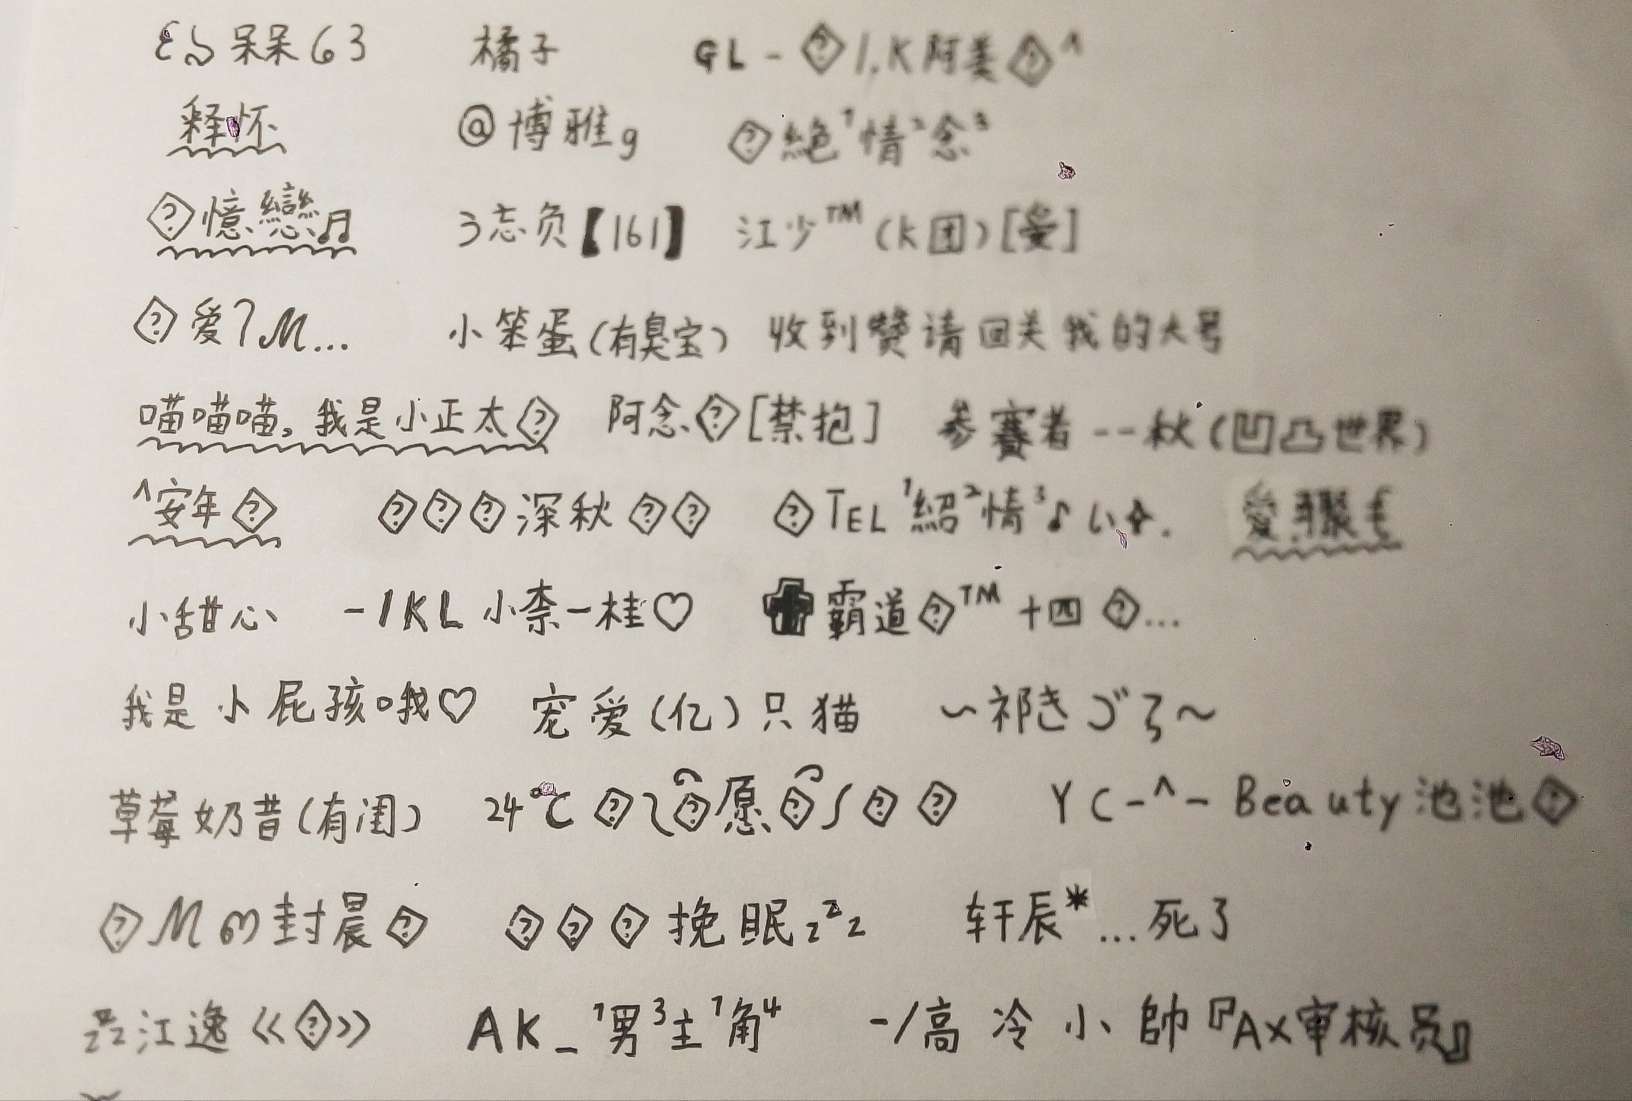 呆呆63 橘子 GL-�1.K阿姜�^
释怀 @博雅g �絶¹情²念³
�憶戀♫ 3忘负【161】 江少™(K团)[爱]
�爱7M... 小笨蛋(有臭宝) 收到赞请回关我的大号
喵喵喵,我是小正太� 阿念�[禁抱] 参赛者--秋(凹凸世界)
^安年� ���深秋�� �TEL¹紹²情³♪ 愛
小甜心 -1KL小柰一桂♡ 霸道�™十四�...
我是小屁孩哦♡ 宠爱(亿)只猫 ~祁き
草莓奶昔(有闺) 24°C � � 愿 � � � YC-^-Beauty池池�
�M ო封晨� ���挽眠zᶻz 轩辰*...死了
江逸《�》 AK_¹男³主¹角⁴ -/高冷小帥『AX审核员』